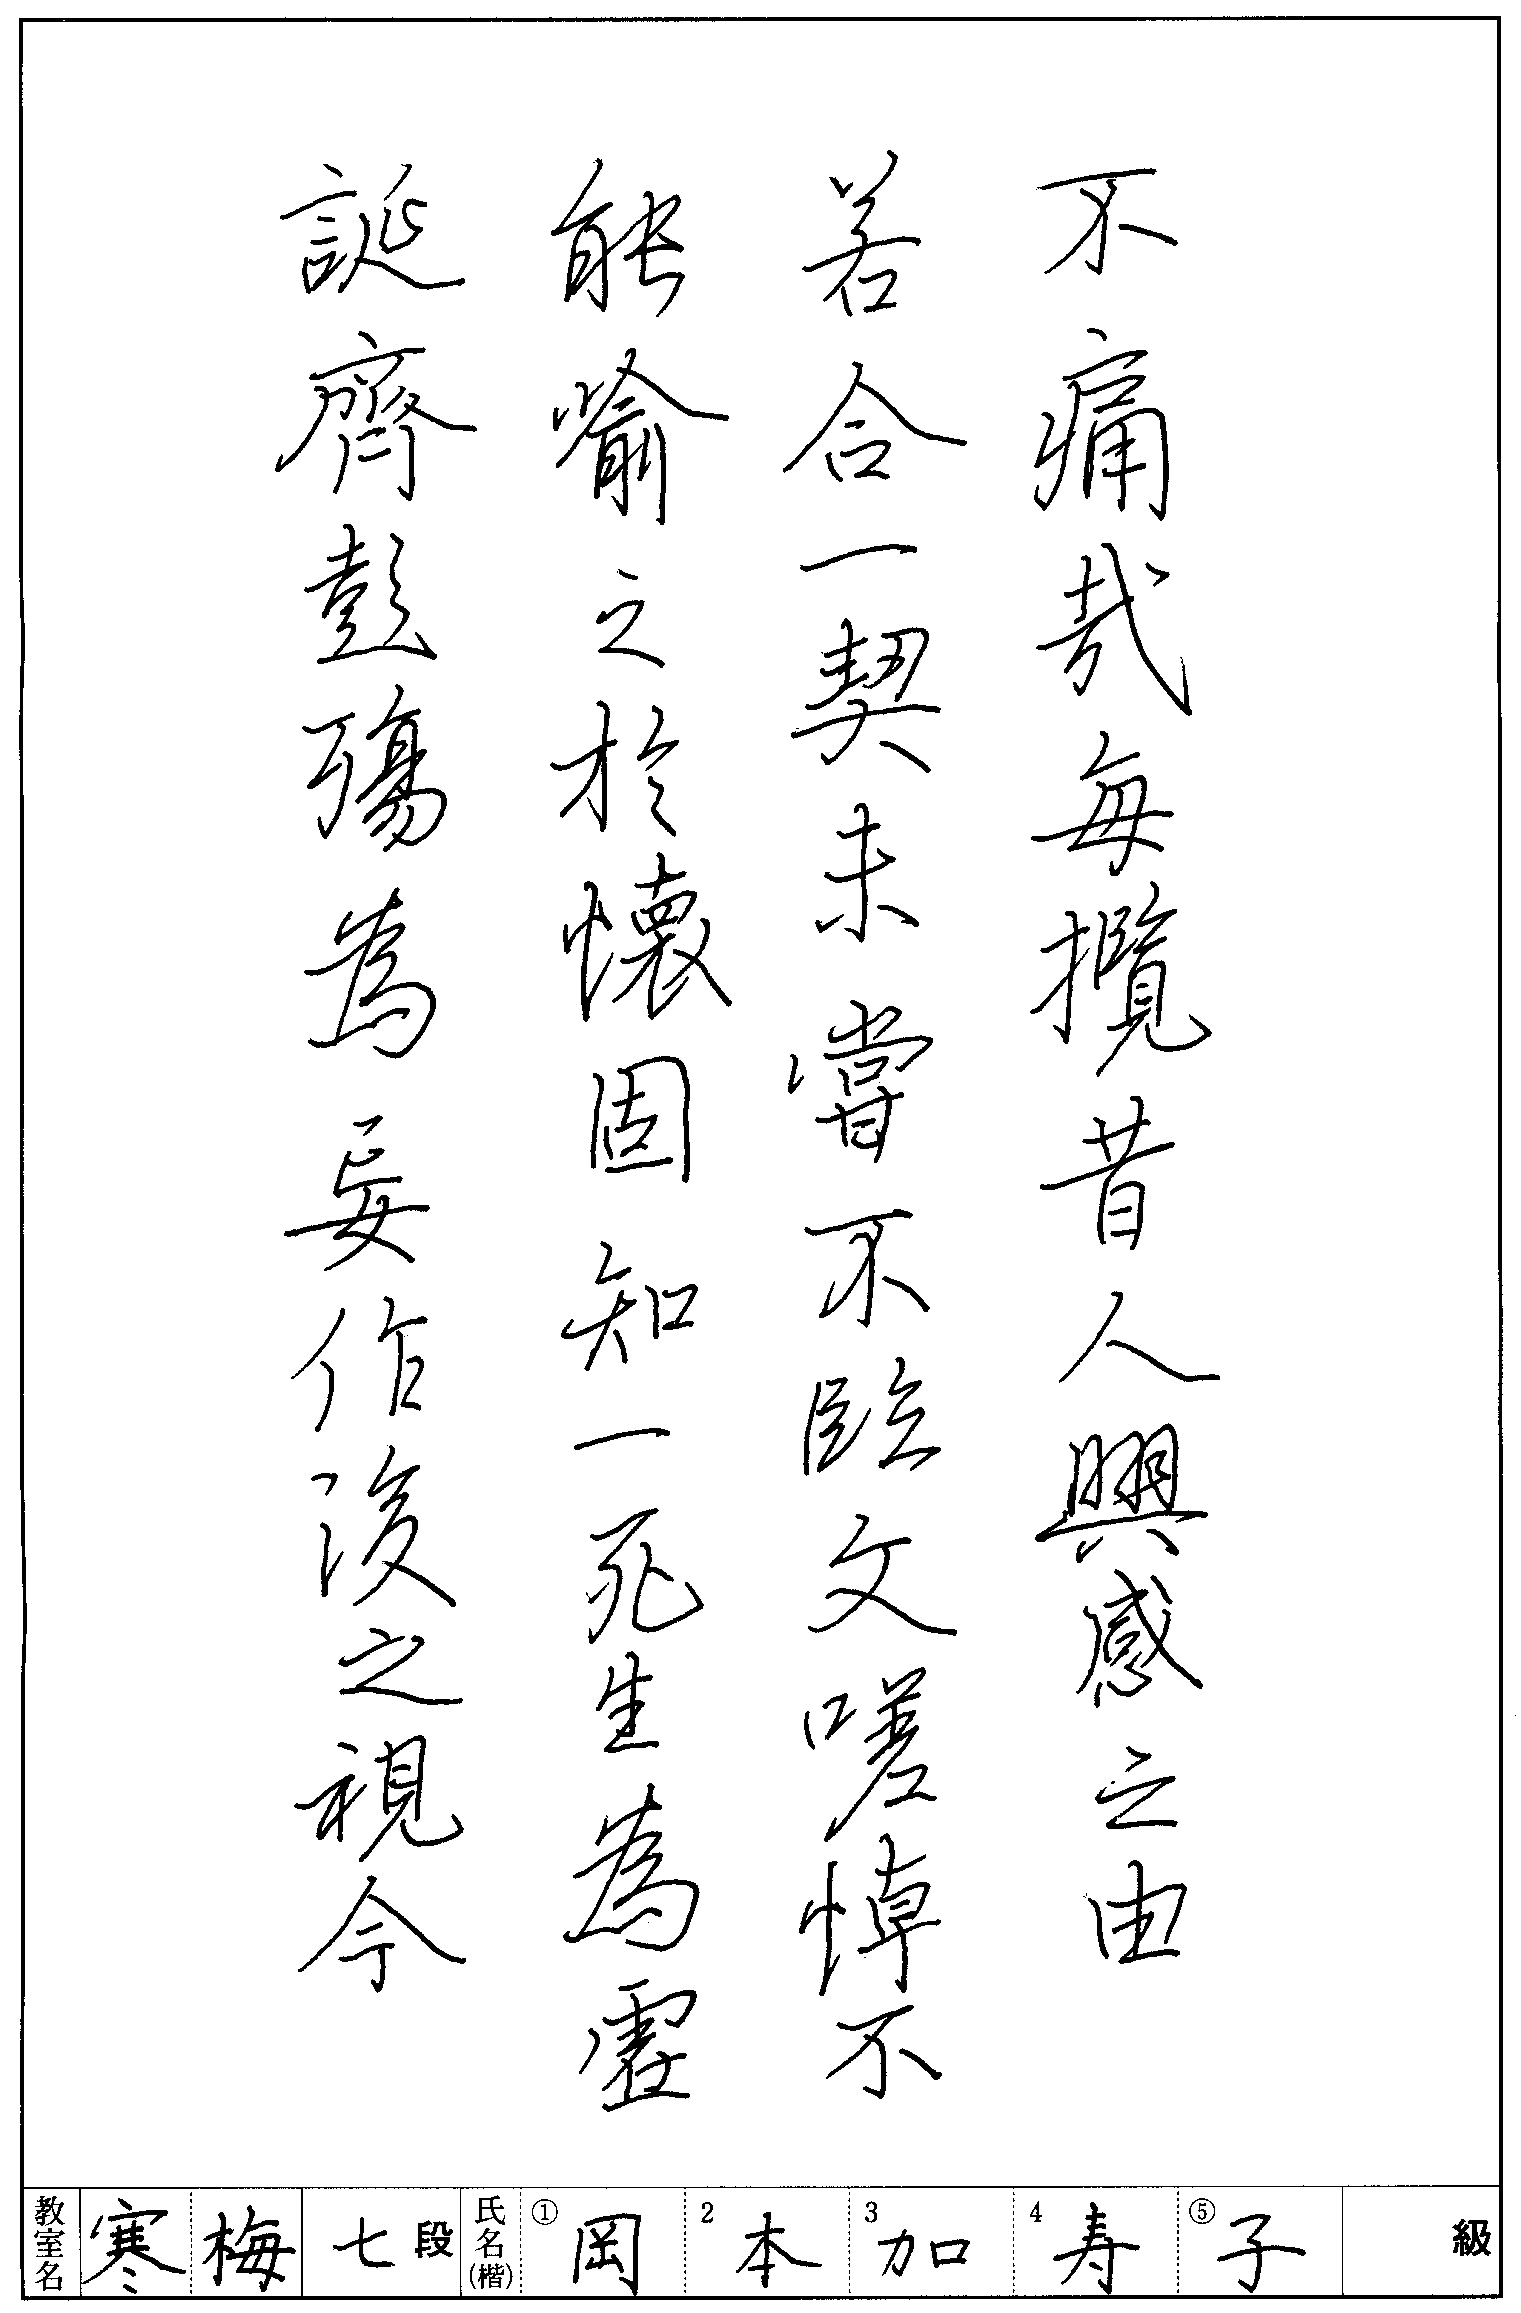 不痛哉每攬昔人興感之由
若合一契未嘗不臨文嗟悼不
能喻之於懷固知一死生為虛
誕齊彭殤為妄作後之視今
教室名 寒梅 七段 氏名(楷) ①岡 2本 3加 4寿 ⑤子 級